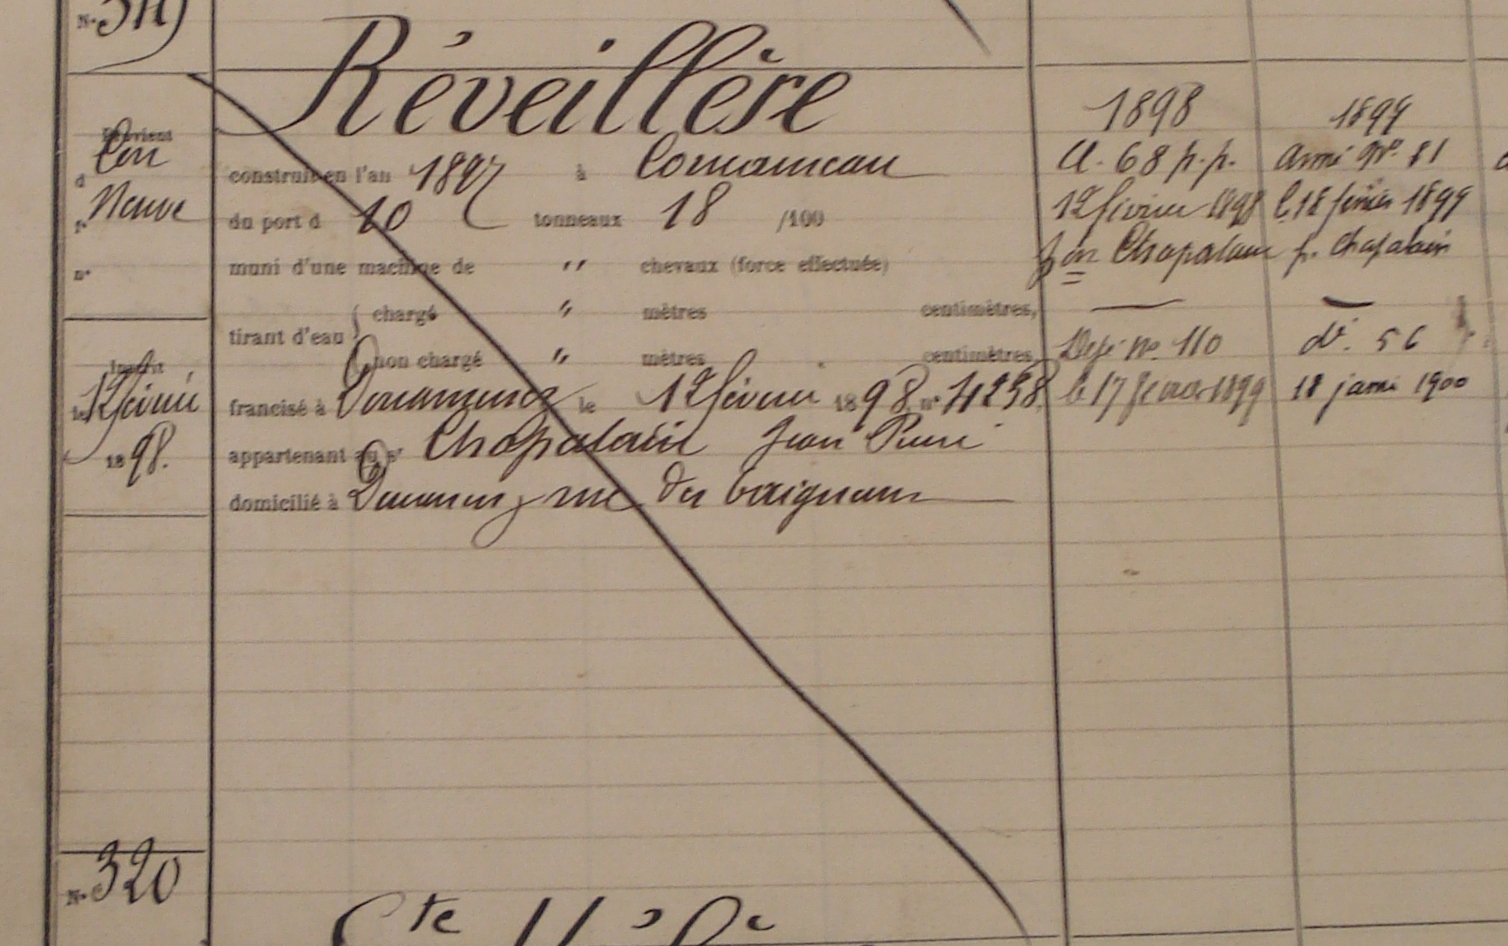 N° 319
Réveillère
Provient
Con
d
Neuve
r
n°
Inscrit
le 12 février
1898.
construit en l'an 1897 à Concarneau
du port d 10 tonneaux 18 /100
muni d'une machine de " chevaux (force effectuée)
tirant d'eau
chargé " mètres centimètres,
non chargé " mètres centimètres,
francisé à Douarnenez le 12 février 1898 n° 4238.
appartenant au sr Chapalain Jean Pierre
domicilié à Douarnenez rue des
1898
A. 68 p.p.
12 février 1898
Chapalain
Dési n° 110
le 17 1899
1899
Armé N° 81
le 18 février 1899
p. Chapalain
d°. 56
18 janv 1900
N° 320
Ste